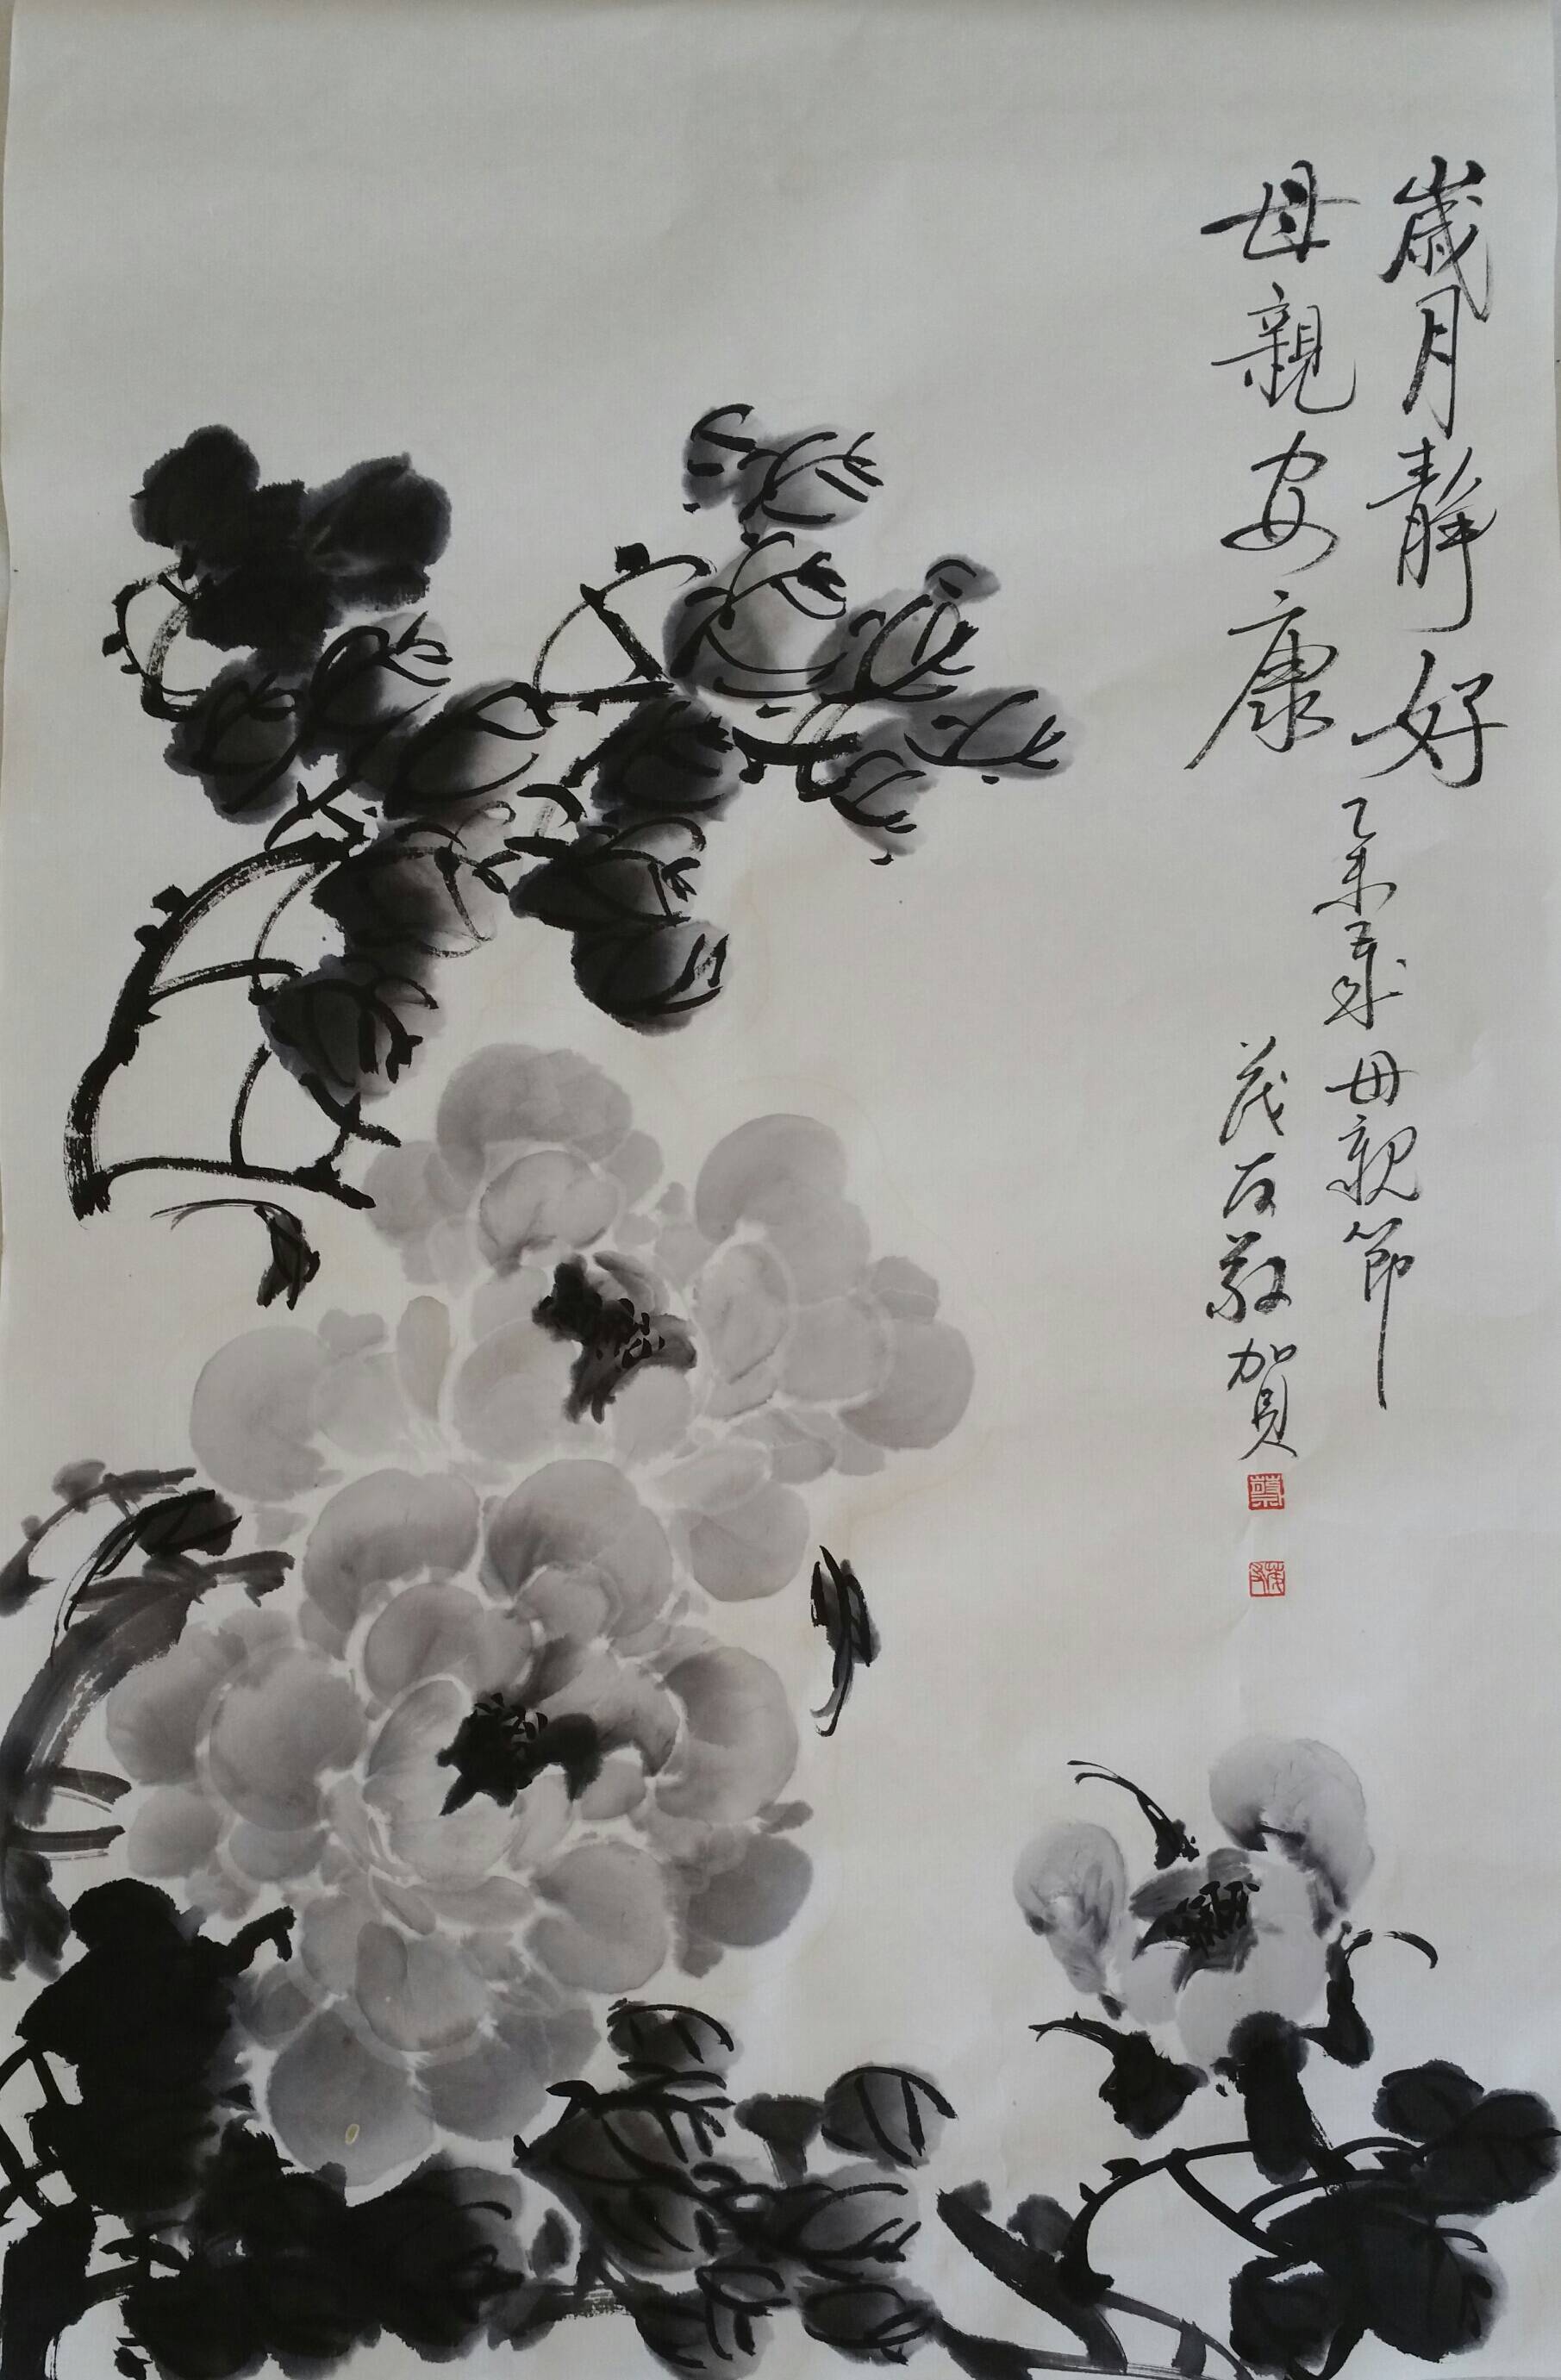 歲月靜好
母親安康
乙未年母親節
茂友敬賀